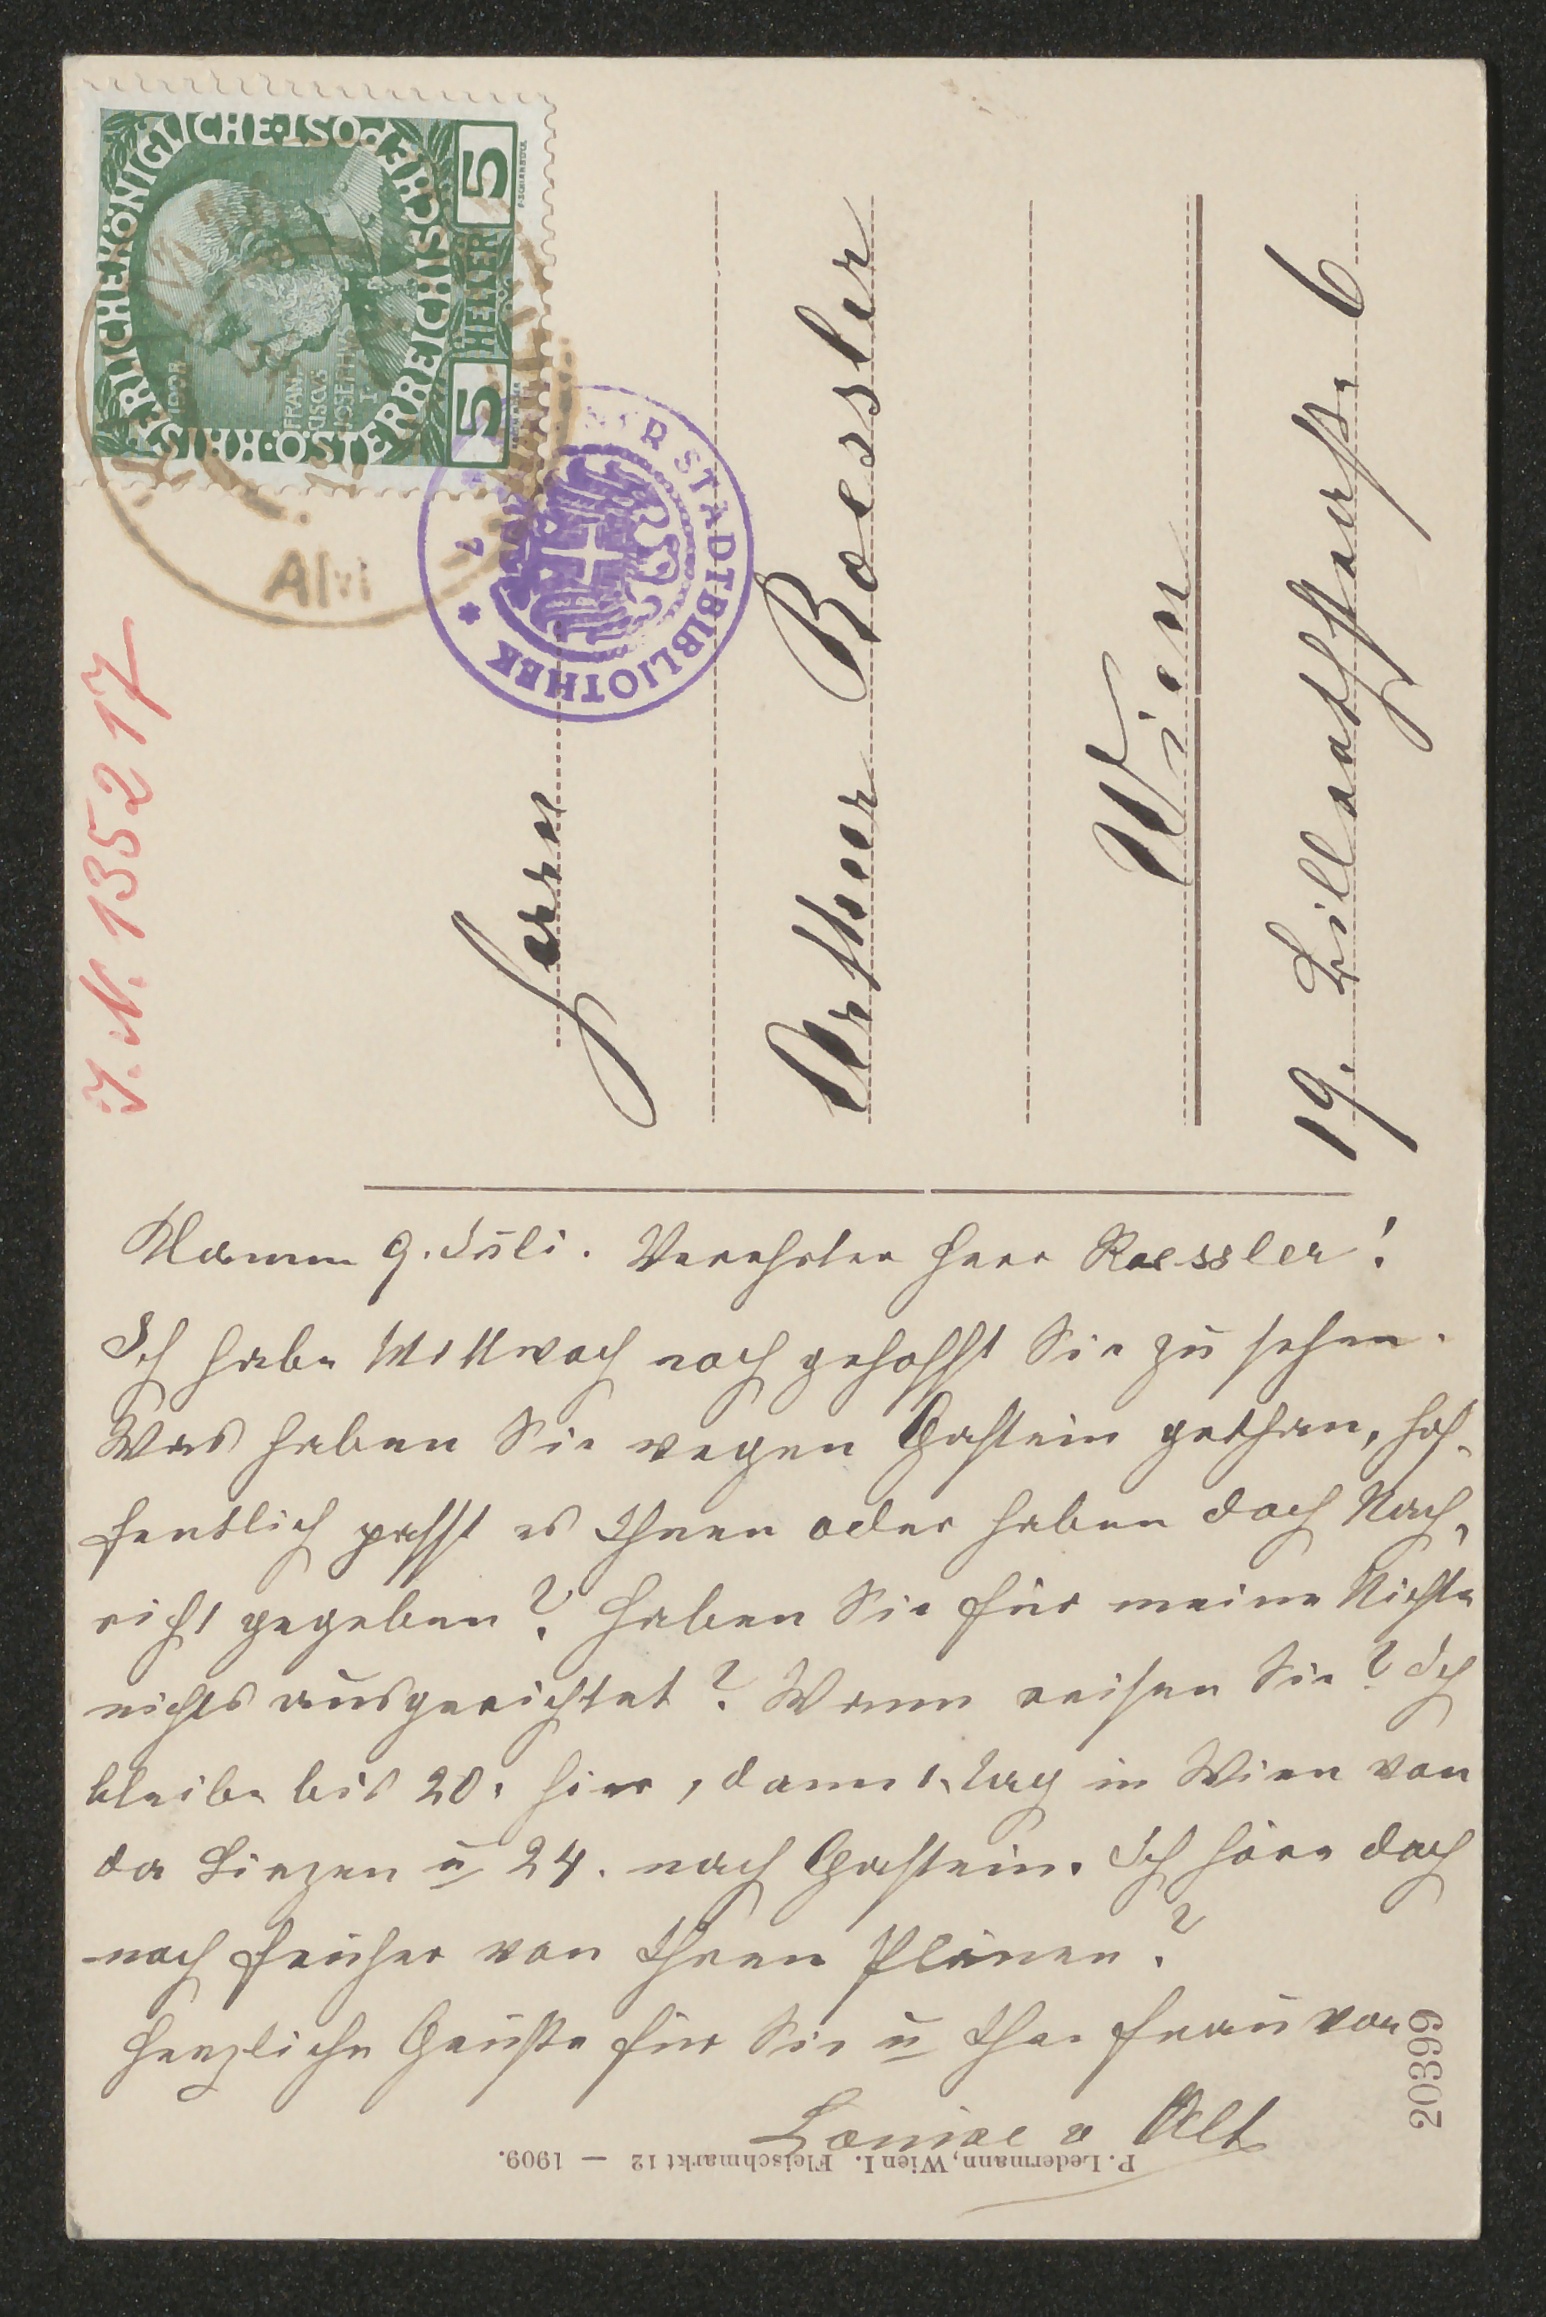 KAISERLICHE KÖNIGLICHE ÖSTERREICHISCHE POST
1908
FRAN
CISCVS
IOSEPHVS
I
5 HELLER 5
STADTBIBLIOTHEK
I. N. 135217
Herrn
Arthur Roessler
Wien
19. Billrothstrasse 6
Klamm 9. Juli. Verehrter Herr Roessler!
Ich habe Mittwoch noch gehofft Sie zu sehen.
Was haben Sie wegen Gastein gethan, hof-
fentlich passt es Ihnen oder haben doch Nach-
richt gegeben? Haben Sie für meine Nichte
nichts ausgerichtet? Wann reisen Sie? Ich
bleibe bis 20. hier, dann 1 Tag in Wien von
da Liezen u 24. nach Gastein. Ich höre doch
noch früher von Ihren Plänen?
Herzliche Grüsse für Sie u Ihre Frau von
Louise v Alt
P. Ledermann, Wien I. Fleischmarkt 12 — 1909.
20399